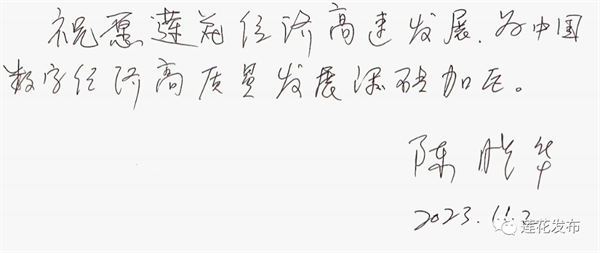 祝愿莲花经济高速发展，为中国
数字经济高质量发展添砖加瓦。
陈晓华
2023.11.2
莲花发布